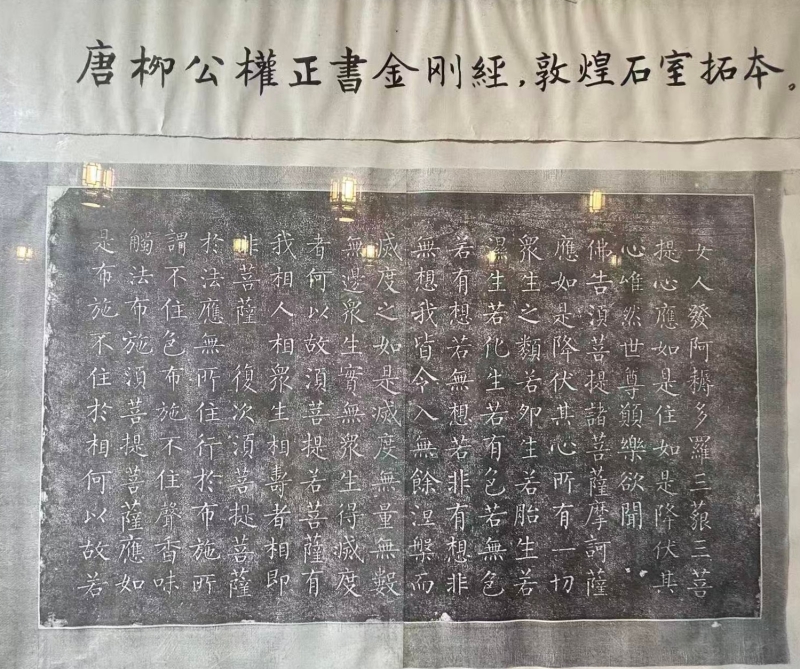 唐柳公權正書金刚經,敦煌石室拓本。
女人發阿耨多羅三藐三菩
提心應如是住如是降伏其
心唯然世尊願樂欲聞
佛告須菩提諸菩薩摩訶薩
應如是降伏其心所有一切
衆生之類若夘生若胎生若
濕生若化生若有色若無色
若有想若無想若非有想非
無想我皆令入無餘涅槃而
滅度之如是滅度無量無數
無邊衆生實無衆生得滅度
者何以故須菩提若菩薩有
我相人相衆生相壽者相即
非菩薩 復次須菩提菩薩
於法應無所住行於布施所
謂不住色布施不住聲香味
觸法布施須菩提菩薩應如
是布施不住於相何以故若